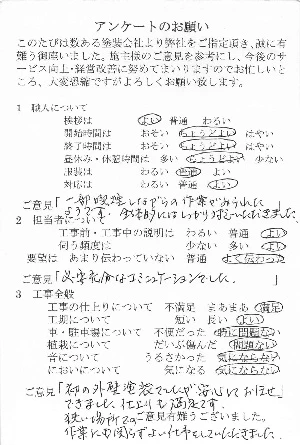 アンケートのお願い
このたびは数ある塗装会社より弊社をご指定頂き、誠に有
難う御座いました。施主様のご意見を参考にし、今後のサ
ービス向上・経営改善に努めてまいりますのでお忙しいとこ
ろ、大変恐縮ですがよろしくお願い致します。
1 職人について
挨拶は よい 普通 わるい
開始時間は おそい ちょうどよい はやい
終了時間は おそい ちょうどよい はやい
昼休み・休憩時間は 多い ちょうどよい 少ない
服装は わるい 普通 よい
対応は わるい 普通 よい
ご意見「一部喫煙しながらの作業がみられた
そうです。全体的にはしっかり対応いただきました。
2 担当者について
工事前・工事中の説明は わるい 普通 よい
伺う頻度は 少ない 多い よい
要望は あまり伝わっていない 普通 よく伝わった
ご意見「必要充分なコミュニケーションでした。」
3 工事全般
工事の仕上りについて 不満足 まあまあ 満足
工期について 短い 長い よい
車・駐車場について 不便だった 特に問題ない
植栽について だいぶ傷んだ 問題ない
音について うるさかった 気にならない
においについて 気になる 気にならない
ご意見「初の外壁塗装でしたが安心してお任せ
できました。仕上りも満足です。
狭い場所での
ご意見有難うございました。
作業にも関らずよい仕事をしていただきました。